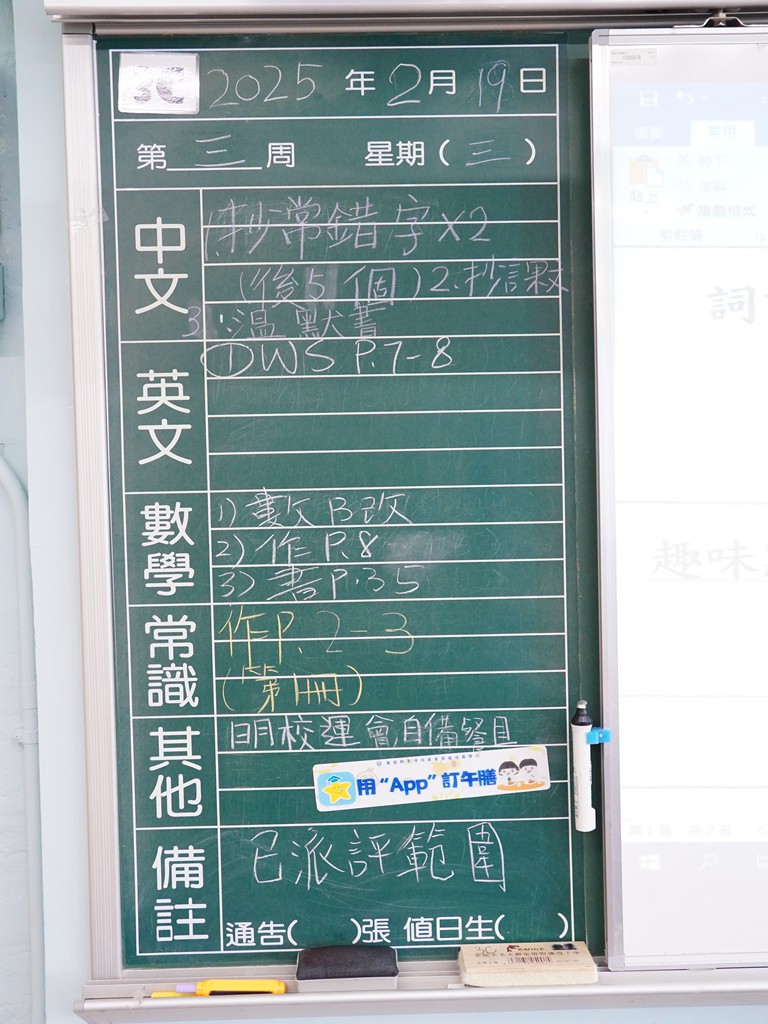 3C 2025 年 2 月 19 日
第 三 周 星期( 三 )
中文
1. 抄常錯字X2
(後5個) 2. 抄課文
3. 溫默書
英文
① WS P.7-8
數學
1) 數B改
2) 作 P.8
3) 書 P.35
常識
作P. 2-3
(第1冊)
其他
明校運會自備餐具
用“App”訂午膳
備註
已派評範圍
通告( )張 值日生( )
3C
常用
貼上
剪下
複製格式
剪貼簿
詞
趣味